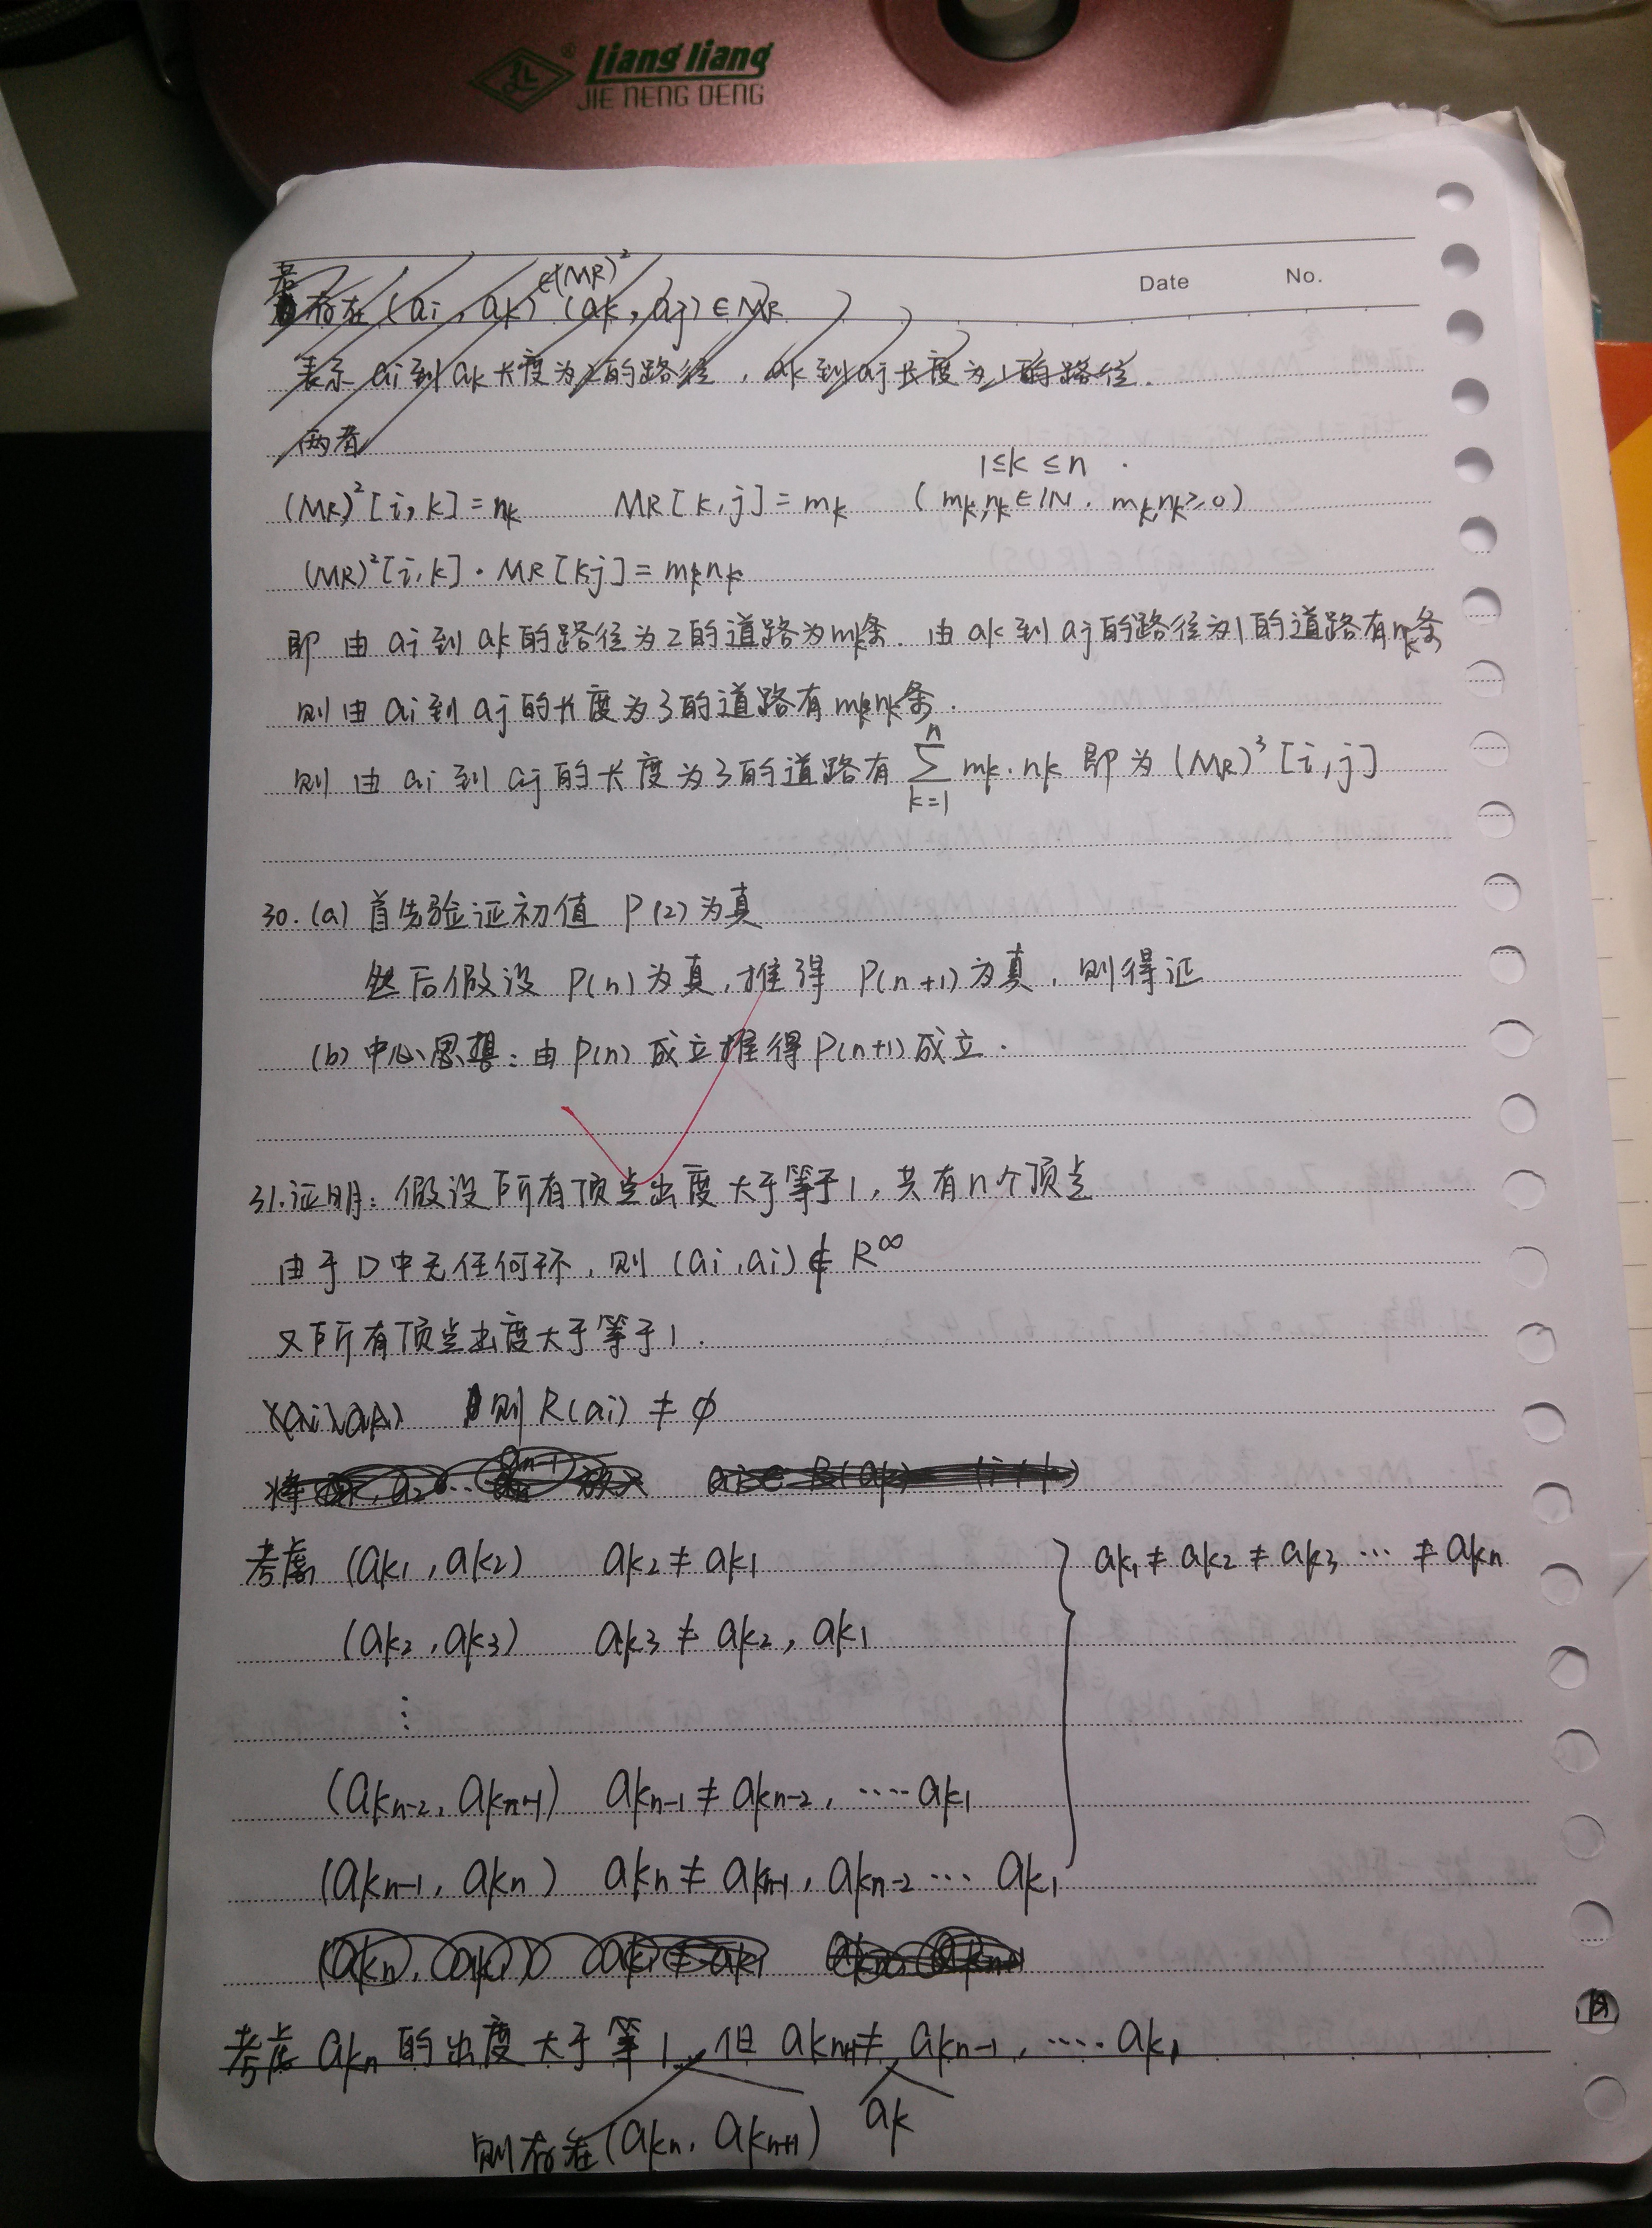 liang liang
JIE NENG DENG
Date No.
∈(MR)²
存在 (ai, ak) (ak, aj) ∈ MR
表示 ai 到 ak 长度为2的路径, ak 到 aj 长度为1的路径.
两者
1≤k≤n
(MR)²[i,k]=nk MR[k,j]=mk (mk,nk∈IN. mk,nk≥0)
(MR)²[i,k]·MR[kj]=mknk
即由 ai 到 ak 的路径为2的道路为mk条. 由 ak 到 aj 的路径为1的道路有nk条
则由 ai 到 aj 的长度为3的道路有 mknk条.
则由 ai 到 aj 的长度为3的道路有 ∑(k=1 → n) mk·nk 即为 (MR)³[i,j]
30.(a) 首先验证初值 P(2)为真
然后假设 P(n)为真,推得 P(n+1)为真, 则得证
(b) 中心思想:由P(n) 成立推得P(n+1) 成立.
31.证明: 假设所有顶点出度大于等于1, 共有n个顶点
由于D中无任何环, 则 (ai,ai)∉R^∞
又所有顶点出度大于等于1.
(ai,ak) 则 R(ai) ≠ ∅
将 a2 … an-1 放入
考虑 (ak1, ak2) ak2 ≠ ak1 } ak1 ≠ ak2 ≠ ak3 … ≠ akn
(ak2, ak3) ak3 ≠ ak2, ak1
⋮
(akn-2, akn-1) akn-1 ≠ akn-2, …… ak1
(akn-1, akn) akn ≠ akn-1, akn-2 … ak1
考虑 akn 的出度大于等1, 但 akn+1≠ akn-1, …… ak1
则存在(akn, akn+1) ak